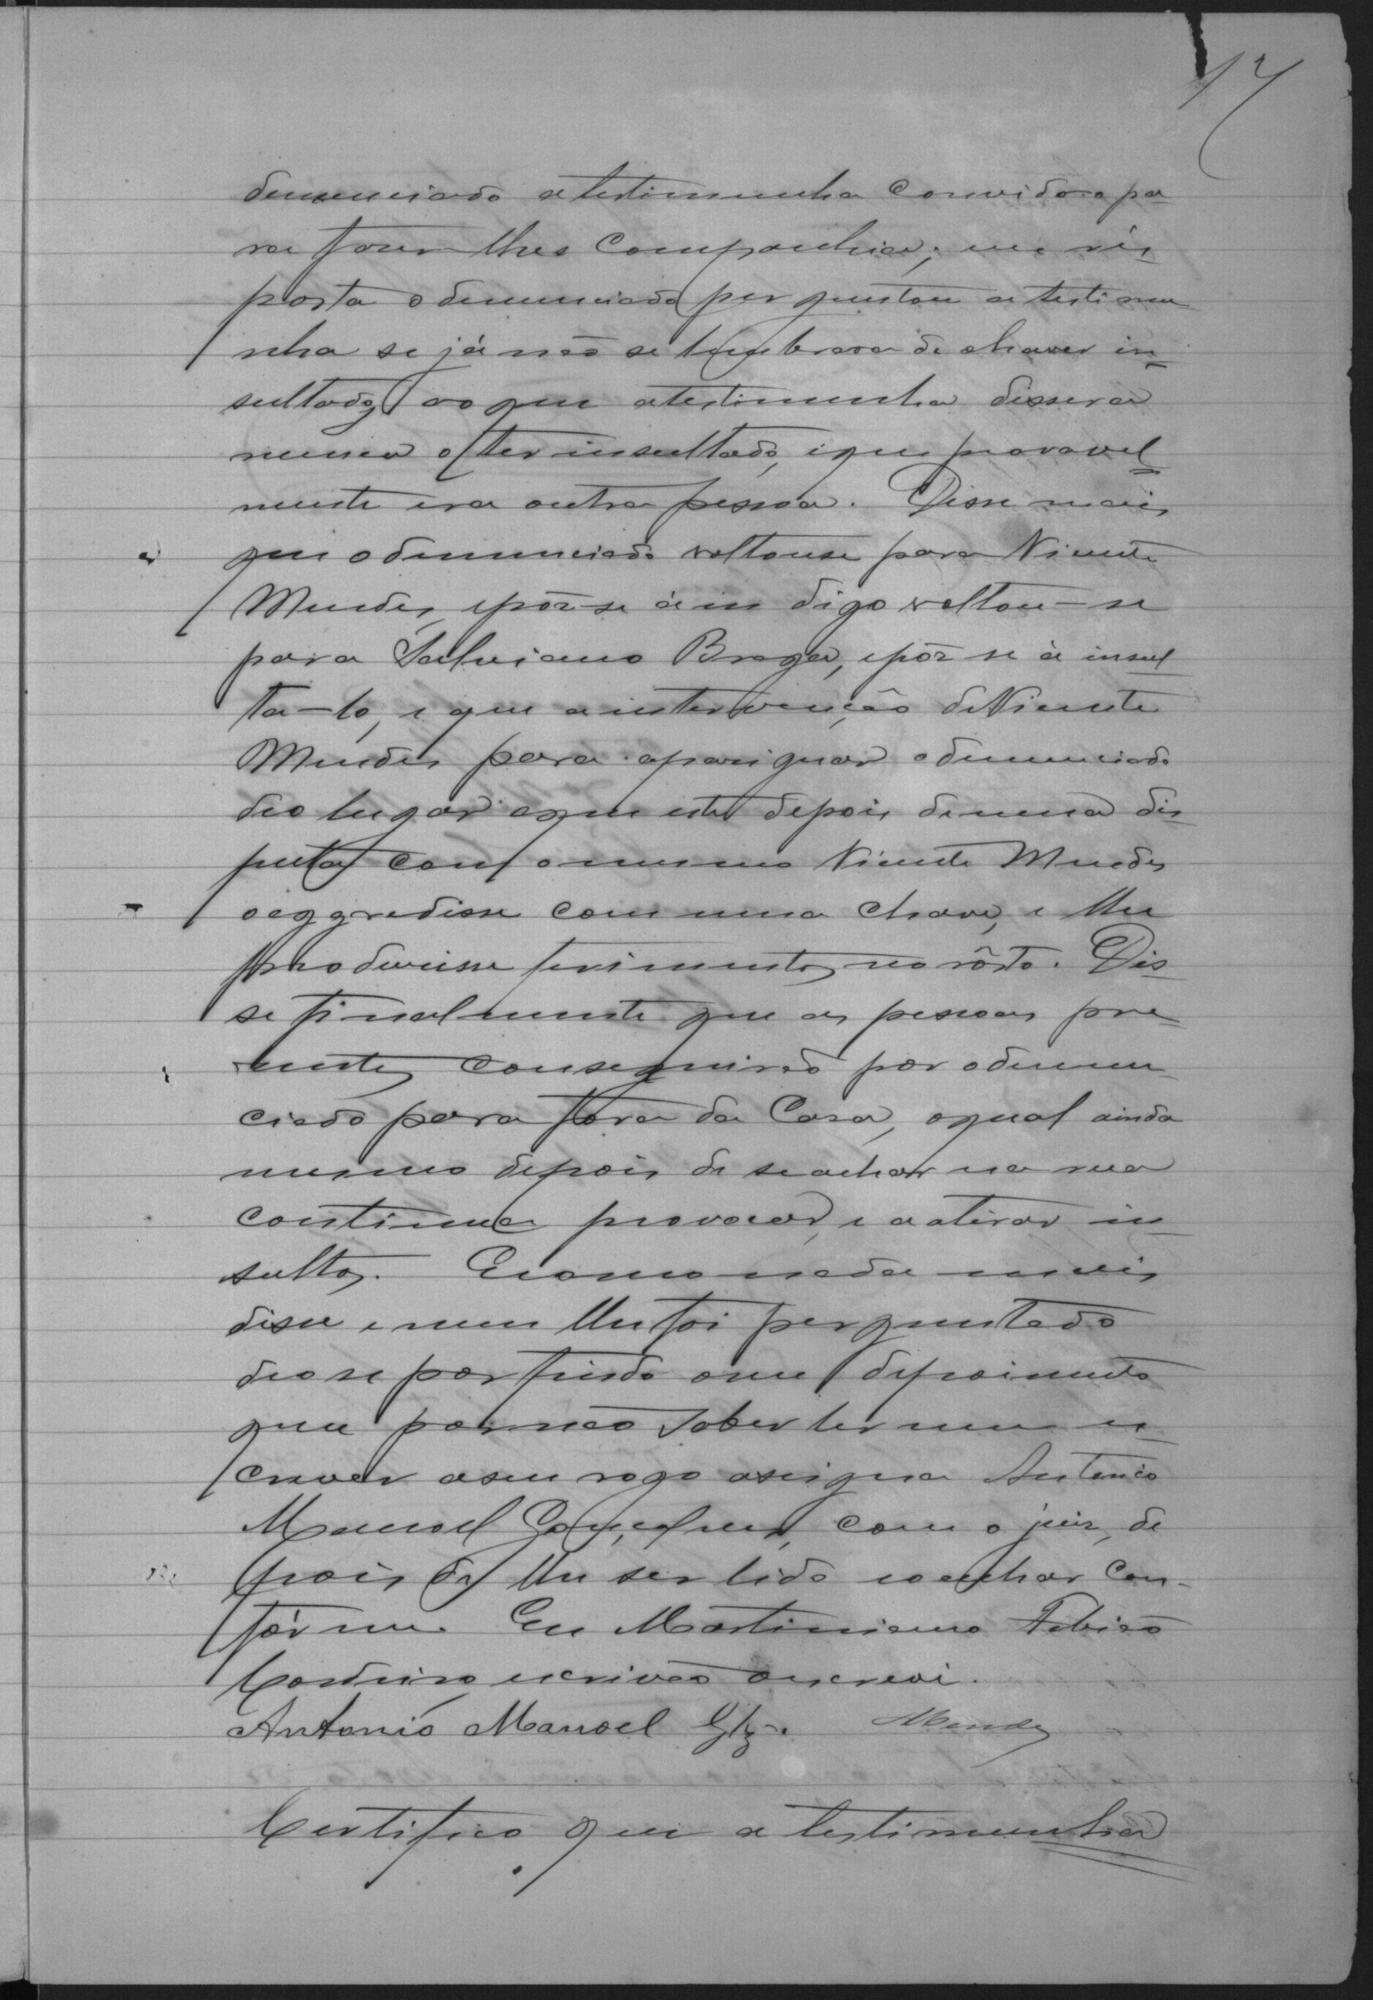 17
denunciado a testimunha convidara pa
ra fazer-lhes companhia; em res
posta o denunciado perguntou a testimu
nha se já não se lembrava de o haver in
sultado, ao que a testimunha dissera
nunca o ter insultado, e que provavel
mente era outra pessoa. Disse mais
que o denunciado voltou-se para Vicente
Mendes, e pôz-se á in digo voltou-se
para Salviano Braga, e pôz se á insul
ta-lo, e que a intervenção de Vicente
Mendes para apasiguar o denunciado
deo lugar a que este depois de uma dis
puta com o mesmo Vicente Mendes
o aggredisse com uma chave, e lhe
produzisse ferimentos no rôsto. Dis
se finalmente que as pessoas pre
sentes conseguirão pôr o denun
ciado para fora da Casa, o qual ainda
mesmo depois de se achar na rua
continua provocar, e a atirar in
sultos. E como nada mais
disse e nem lhe foi perguntado
deo se por findo o seu depoimento
que por não saber ler nem es
crever a seu rogo assigna Antonio
Manoel Gonçalves, com o juiz, de
pois de lhe ser lido e o achar con-
fórme. Eu Martiniano Fabião
Cordeiro escrivão o escrevi.
Antonio Manoel Glz. Mendes
Certifico que a testimunha